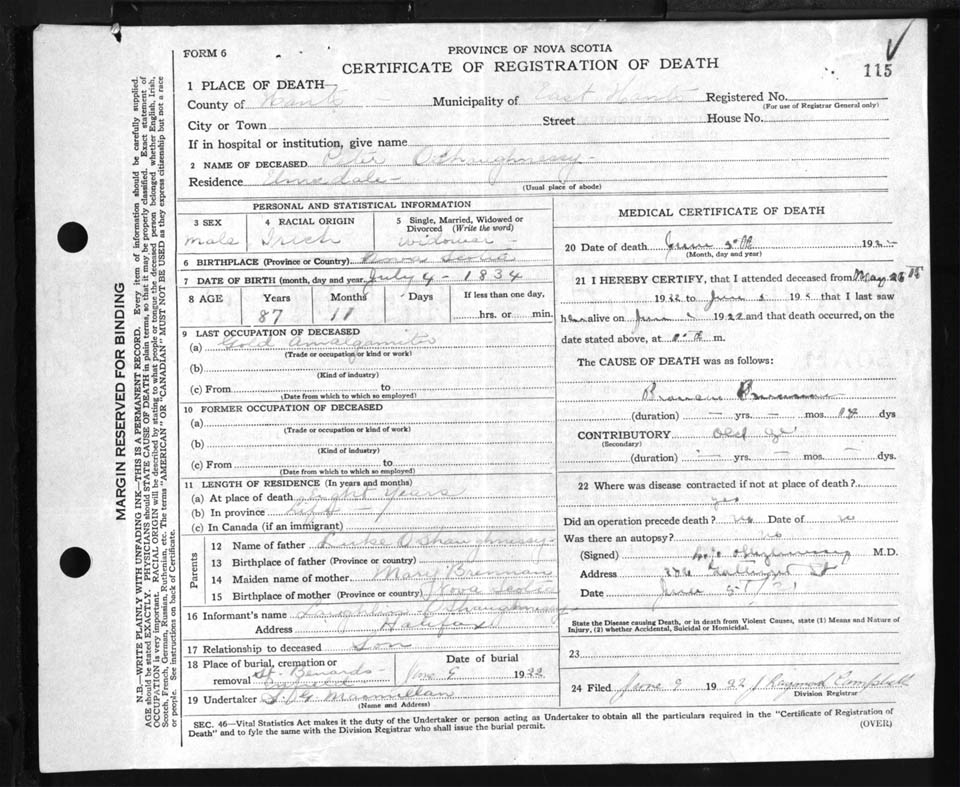 FORM 6
PROVINCE OF NOVA SCOTIA
CERTIFICATE OF REGISTRATION OF DEATH
115
1 PLACE OF DEATH
County of Hants Municipality of East Hants Registered No.
(For use of Registrar General only)
City or Town Street House No.
If in hospital or institution, give name
2 NAME OF DECEASED Peter O'Shaughnessy
Residence
(Usual place of abode)
PERSONAL AND STATISTICAL INFORMATION
3 SEX 4 RACIAL ORIGIN 5 Single, Married, Widowed or Divorced (Write the word)
Male Irish Widower
6 BIRTHPLACE (Province or Country) Nova Scotia
7 DATE OF BIRTH (month, day and year) July 4 - 1834
8 AGE Years Months Days If less than one day,
87 11 hrs. or min.
9 LAST OCCUPATION OF DECEASED
(a) Gold
(Trade or occupation or kind or work)
(b)
(Kind of industry)
(c) From to
(Date from which to which so employed)
10 FORMER OCCUPATION OF DECEASED
(a)
(Trade or occupation or kind of work)
(b)
(Kind of industry)
(c) From to
(Date from which to which so employed)
11 LENGTH OF RESIDENCE (In years and months)
(a) At place of death Years
(b) In province Life
(c) In Canada (if an immigrant)
Parents
12 Name of father Luke O'Shaughnessy
13 Birthplace of father (Province or country)
14 Maiden name of mother Mary Brennan
15 Birthplace of mother (Province or country) Nova Scotia
16 Informant's name O'Shaughnessy
Address Halifax
17 Relationship to deceased Son
18 Place of burial, cremation or removal St. Date of burial June 9 1922
19 Undertaker Macmillan
(Name and Address)
MEDICAL CERTIFICATE OF DEATH
20 Date of death June 5th 192
(Month, day and year)
21 I HEREBY CERTIFY, that I attended deceased from May
1922 to June 5 19 that I last saw
h alive on June 1922 and that death occurred, on the
date stated above, at m.
The CAUSE OF DEATH was as follows:
(duration) yrs. mos. dys
CONTRIBUTORY Old
(Secondary)
(duration) yrs. mos. dys.
22 Where was disease contracted if not at place of death?
yes
Did an operation precede death? no Date of no
Was there an autopsy? no
(Signed) M.D.
Address St
Date June
State the Disease causing Death, or in death from Violent Causes, state (1) Means and Nature of Injury, (2) whether Accidental, Suicidal or Homicidal.
23
24 Filed June 9 1922 J Raymond Campbell
Division Registrar
SEC. 46—Vital Statistics Act makes it the duty of the Undertaker or person acting as Undertaker to obtain all the particulars required in the "Certificate of Registration of
Death" and to fyle the same with the Division Registrar who shall issue the burial permit.
(OVER)
MARGIN RESERVED FOR BINDING
N.B.—WRITE PLAINLY WITH UNFADING INK—THIS IS A PERMANENT RECORD. Every item of information should be carefully supplied.
AGE should be stated EXACTLY. PHYSICIANS should STATE CAUSE OF DEATH in plain terms, so that it may be properly classified. Exact statement of
OCCUPATION is very important. RACIAL ORIGIN will be described by stating to what people or tongue the deceased person belonged whether English, Irish,
Scotch, French, German, Russian, Ruthenian, etc. The terms "AMERICAN" OR "CANADIAN" MUST NOT BE USED as they express citizenship but not a race
or people. See instructions on back of Certificate.